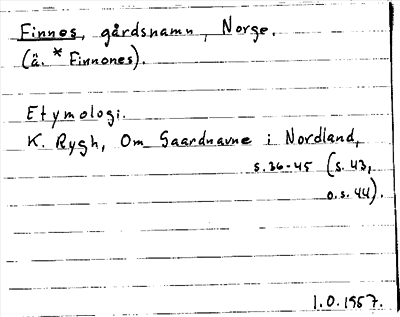 Finnes, gårdsnamn, Norge.
(ä. * Finnones).
Etymologi.
K. Rygh, Om Gaardnavne i Nordland,
s. 26-45 (s. 43,
o. s. 44).
1.O.1957.